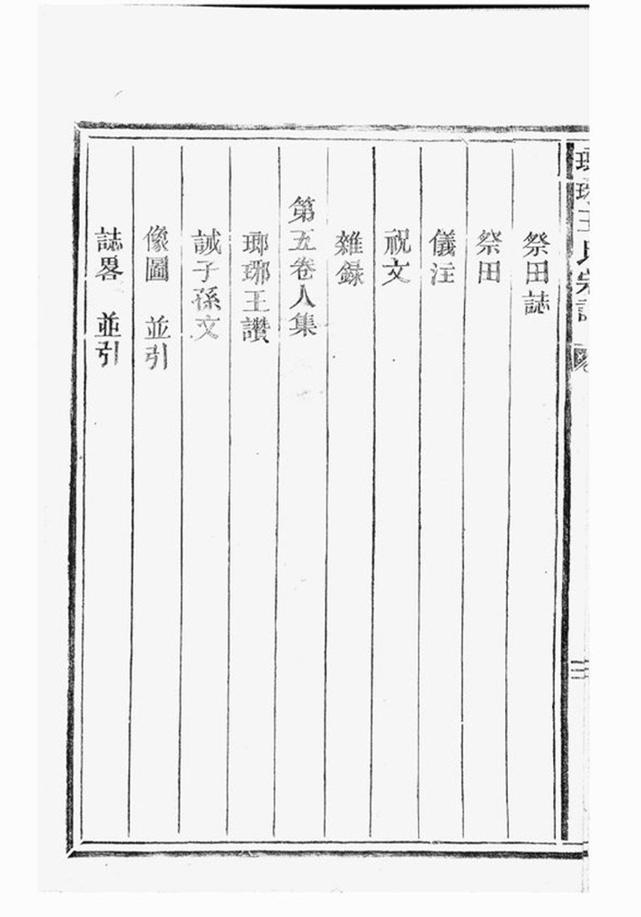 祭田誌
祭田
儀注
祝文
雜錄
第五卷人集
瑯琊王讚
誡子孫文
像圖 並引
誌畧 並引